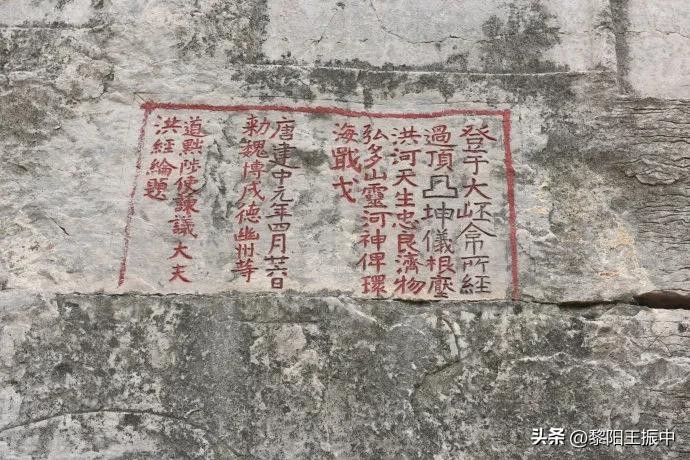 登于大岯命所經
過頂凸坤儀根壓
洪河天生忠良濟物
弘多山靈河神俾環
海戢戈
唐建中元年四月廿六日
勅魏博成德幽州等
道黜陟使諫議大夫
洪經綸題
头条 @黎阳王振中